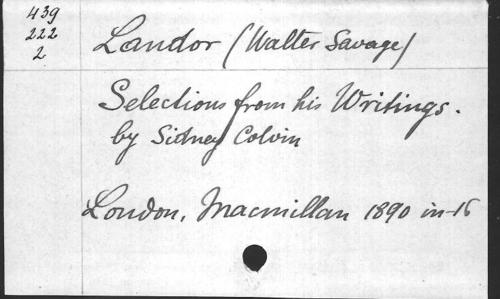 439
222
2
Landor (Walter Savage)
Selections from his Writings.
by Sidney Colvin
London, Macmillan 1890 in-16